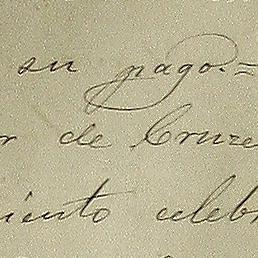 su pago.=
r de Cruze
iento celeb